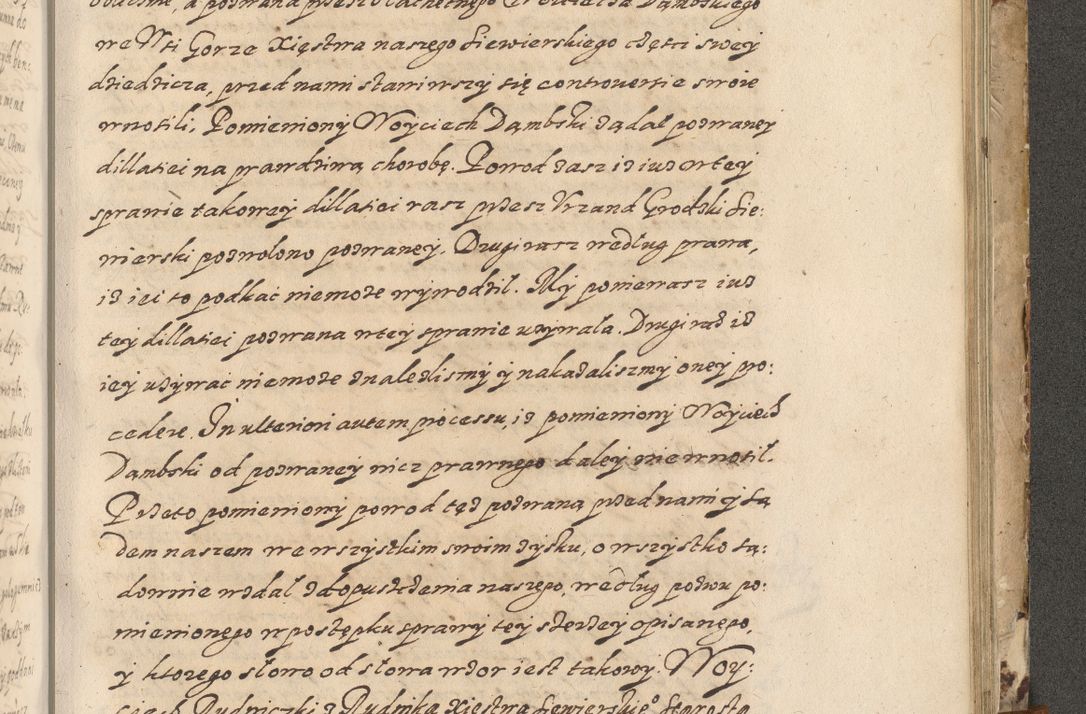 we Wsi Gorze Xięstwa naszego Siewierskiego częsci swey
dziedzicza, przed nami stawiwszy się controuersie swoie
wnosili, Pomieniony Woyciech Dąmbski ządał pozwaney
dillatiei na prawdziwą chorobę. Powod zasz iz iuz w tey
sprawie takowey dillatiei rasz przesz Vrzand Grodzki Sie:
wierski pozwolono pozwaney. Drugi rasz według prawa,
iz iei to podkać niemoze wywodził. My poniewasz iuz
tey dillatiei pozwana w tey sprawie uzywała. Drugi raz iz
iey uzywać niemoze znalezlismy y nakazaliszmy oney pro:
cedere. In ulteriori autem processu, iz pomieniony Woyciech
Dąmbski od pozwaney nicz prawnego daley nie wnosił.
Przeto pomieniony powod tęz pozwaną przed nami y są
dem naszem we wszystkim swoim zysku, o wszystko są:
downie wzdał z dopuszczenia naszego, według pozwu po:
mienionego w postępku sprawy tey szerzey opisanego,
y ktorego słowo od słowa wzor iest takowy. Woy:
ciech Rudniczki z Rudnika Xięstwa Siewierskieo Starosta